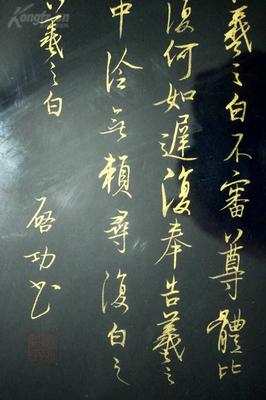 羲之白不審尊體比
復何如遲復奉告羲之
中冷無賴尋復白之
羲之白
啓功書